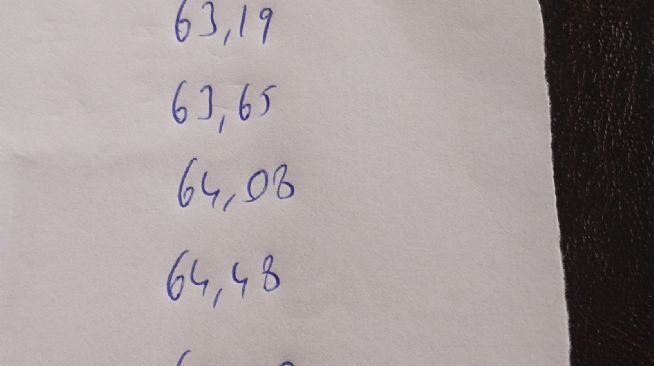 63,19
63,65
64,08
64,48